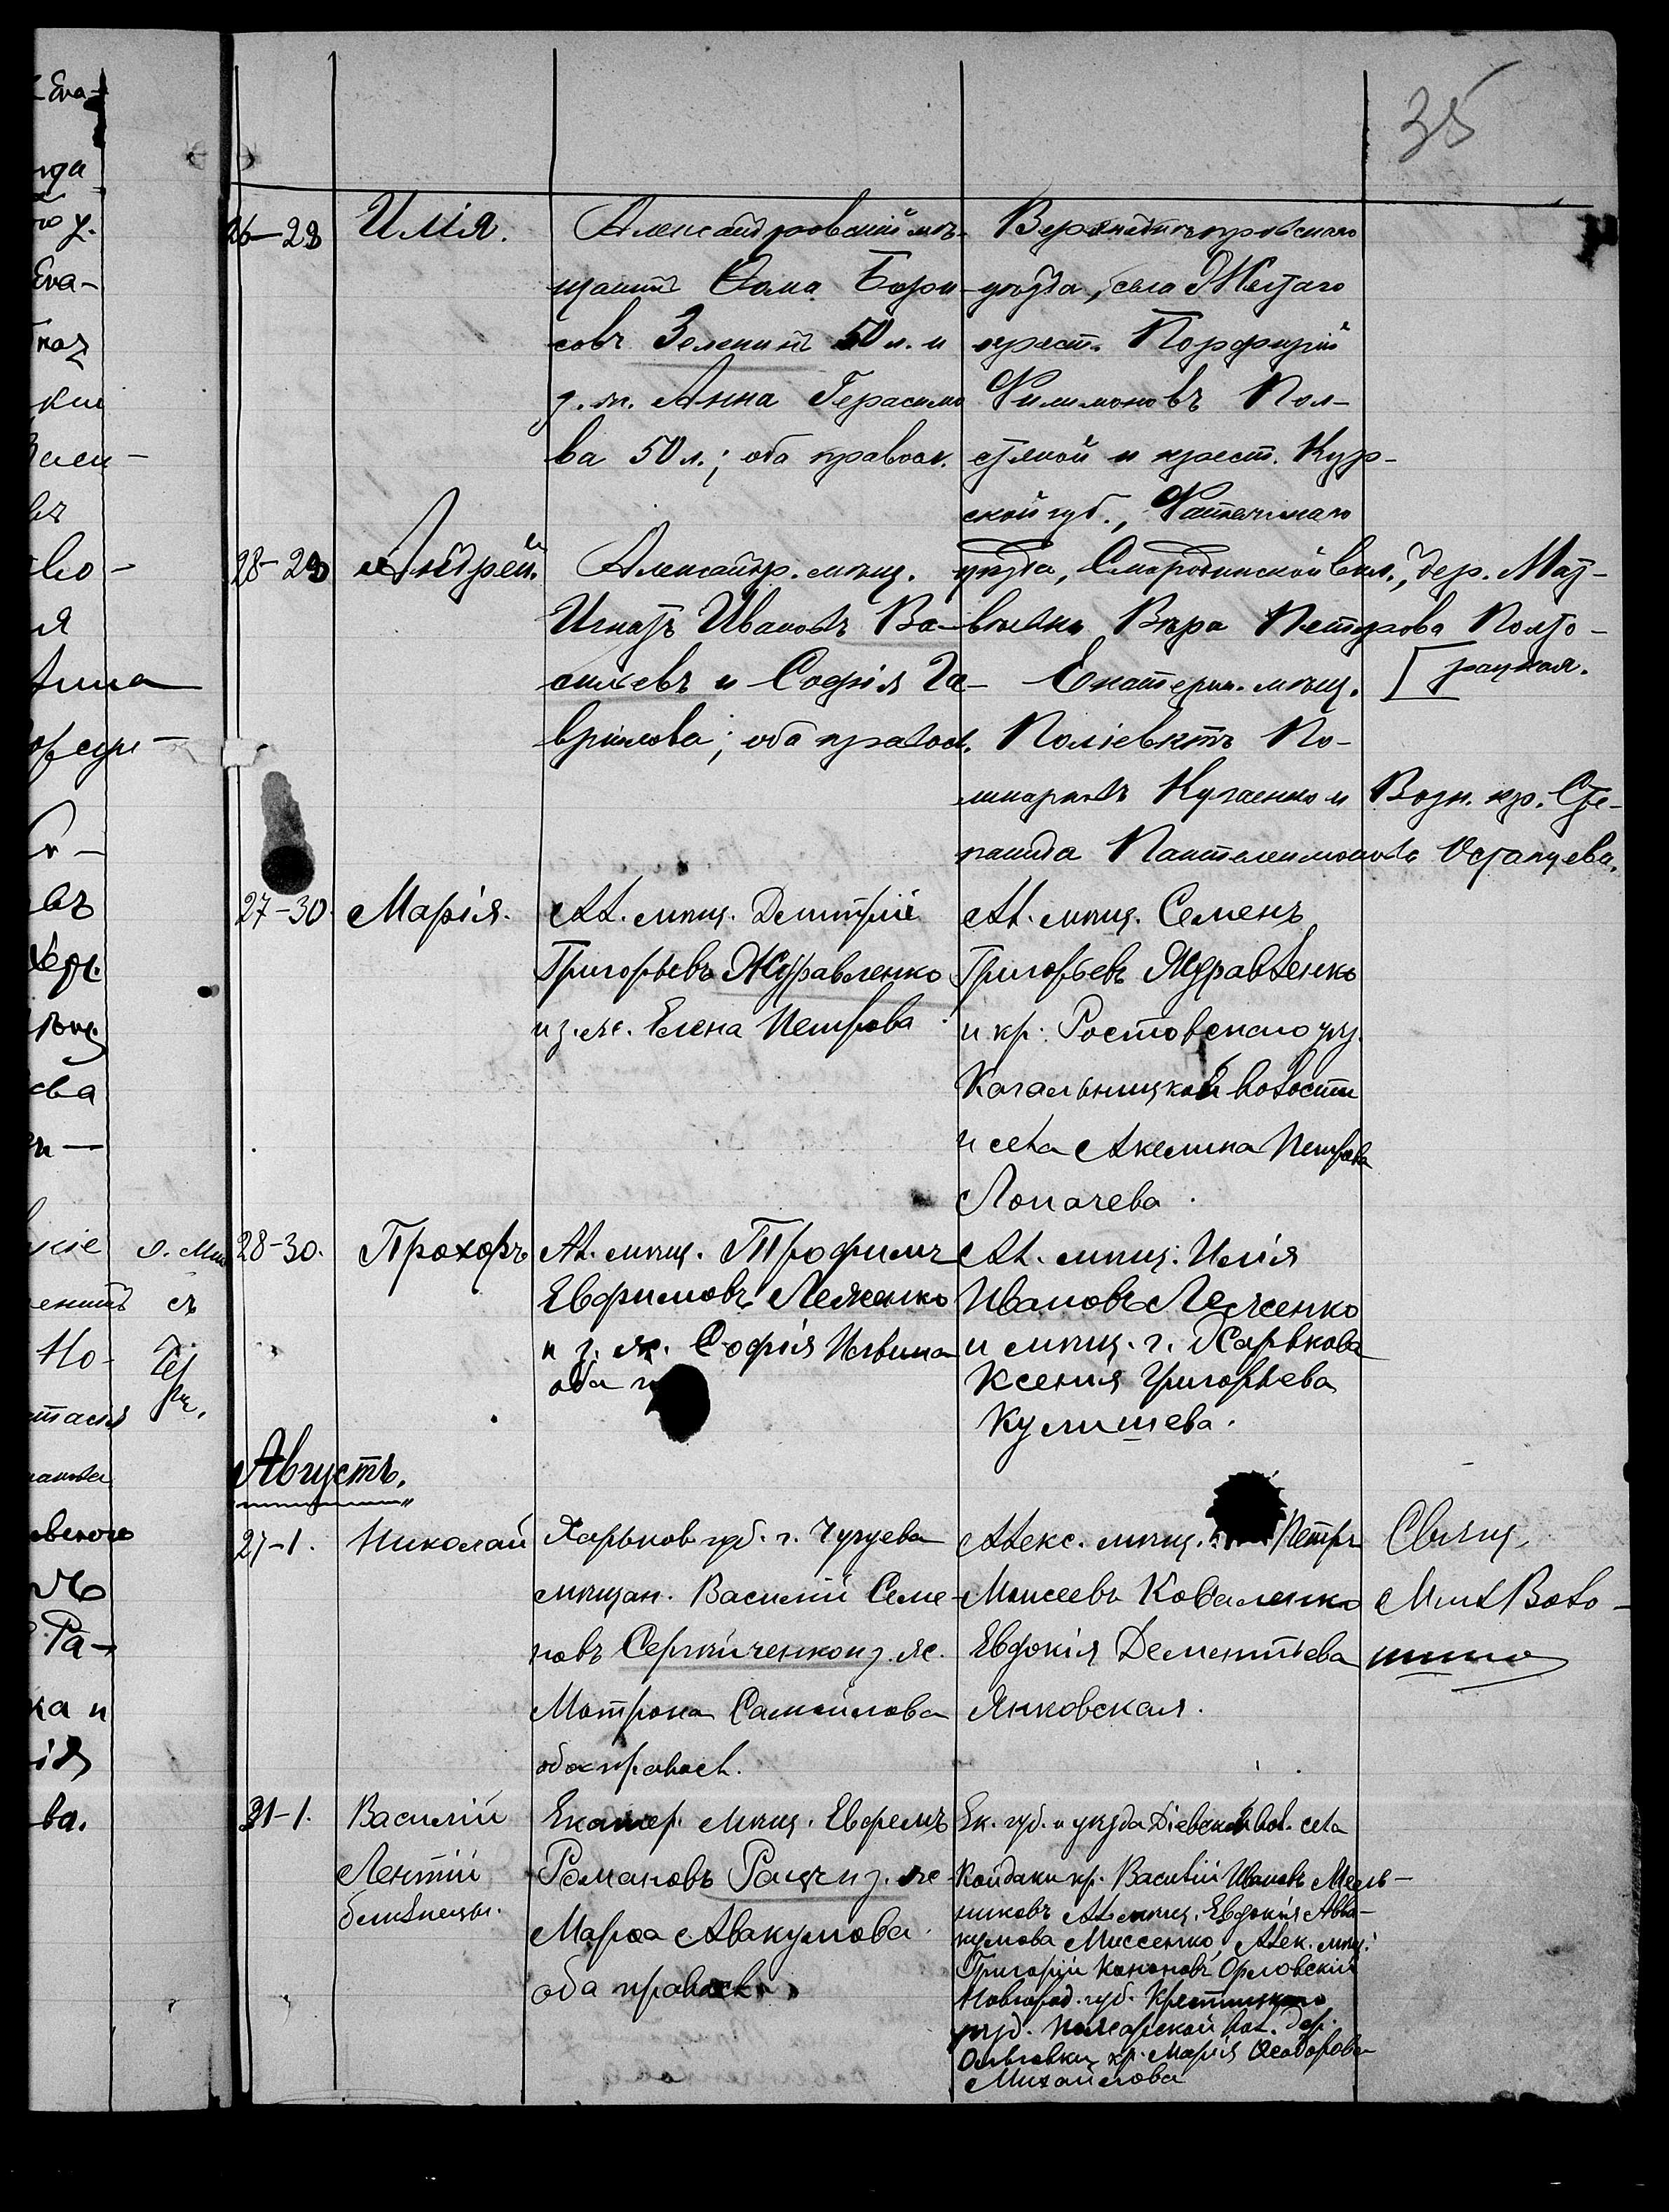 35
26-28 Илія.
Александровскій мѣ-
щанинъ Ѳома Бори-
совъ Зеленинъ 50 л. и
з. ж. Анна Герасимо
ва 50 л.; оба правосл.
Верхнеднѣпровскаго
уѣзда, села Желтаго
крест. Порфирій
Филимоновъ Пол-
стяной и крест. Кур-
ской губ., Фатежскаго
уѣзда, Смородинской вол., дер. Мат-
вѣевки Вѣра Петрова Полто-
рацкая.
28-29 Андрей.
Александр. мѣщ.
Игнатъ Ивановъ Ва-
сильевъ и Софія Га-
врилова; оба правосл.
Екатерин. мѣщ.
Поліевктъ По-
ликарповъ Куценко и Возн. кр. Сте-
панида Пантелеимонова Остапцева.
27-30. Марія.
Ал. мѣщ. Дмитрій
Григорьевъ Журавленко
и з. ж. Елена Петрова
Ал. мѣщ. Семенъ
Григорьевъ Журавленко
и кр. Ростовскаго уѣз.
Кагальницкой волости
и села Акелина Петрова
Лопачева.
28-30. Прохоръ
Ал. мѣщ. Трофимъ
Евфимовъ Леженко
и з. ж. Софія Ильина
оба
Ал. мѣщ. Илія
Ивановъ Леженко
и мѣщ. г. Харькова
Ксенія Григорьева
Кулишева.
Августъ.
27-1. Николай
Харьков губ. г. Чугуева
мѣщан. Василій Семе-
новъ Сергійченко и з. ж.
Матрона Самойлова
оба правосл.
Алекс. мѣщ. Петръ
Моисеевъ Коваленко
Евдокія Дементьева
Янковская.
Свящ.
Мих Воло-
31-1. Василій
Леонтій
близнецы.
Екатер. мѣщ. Ефремъ
Романовъ и з. ж.
Марѳа Авакумова
оба правосл.
Ек. губ. и уѣзда Діевской вол. села
Койдаки кр. Василій Ивановъ Мель-
никовъ Ал. мѣщ. Евдокія Авва-
кумова Миссенко, Алек. мѣщ.
Григорій Кононовъ Орловскій
Новгород. губ. Крестецкаго
уѣзд. вол. дер.
Ольховки кр. Марія Ѳеодорова
Михайлова